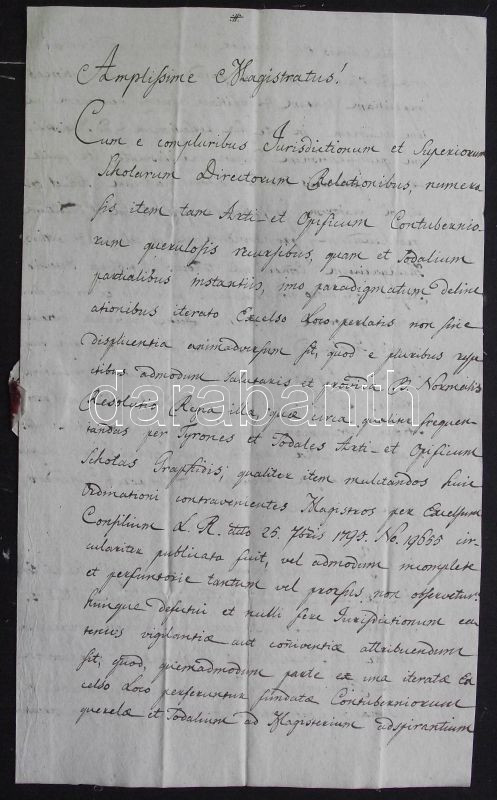 Amplissime Magistratus!
Cum e compluribus Jurisdictionum et Superiorum
Scholarum Directorum Relationibus, numero
sis item tam Arti- et Opificum Contubernio
rum querulosis recursibus, quam et Sodalium
partialibus instantiis, imo paradigmatum deline
ationibus iterato Excelso Loco perlatis non sine
displicentia animadversum sit, quod e pluribus respe
ctibus admodum salutaris et provida B. Normalis
Resolutio Regia illa, quae circa qualiter frequen
tandas per Tyrones et Sodales Arti- et Opificum
Scholas Graphidis; qualiter item mulctandos huic
Ordinationi contravenientes Magistros per Excelsum
Consilium L. R. dtto 25. 7bris 1795. No. 19655 cir
culariter publicata fuit, vel admodum incomplete
et perfunctorie tantum vel prorsus non observetur.
hunque defectui et nulli fere Jurisdictionum ea
tenus vigilantiae aut conniventiae attribuendum
sit, quod, quemadmodum parte ex una iteratae Ex
celso Loco perferuntur fundatae Contuberniorum
querelae et Sodalium ad Magisterium adspirantium
darabanth